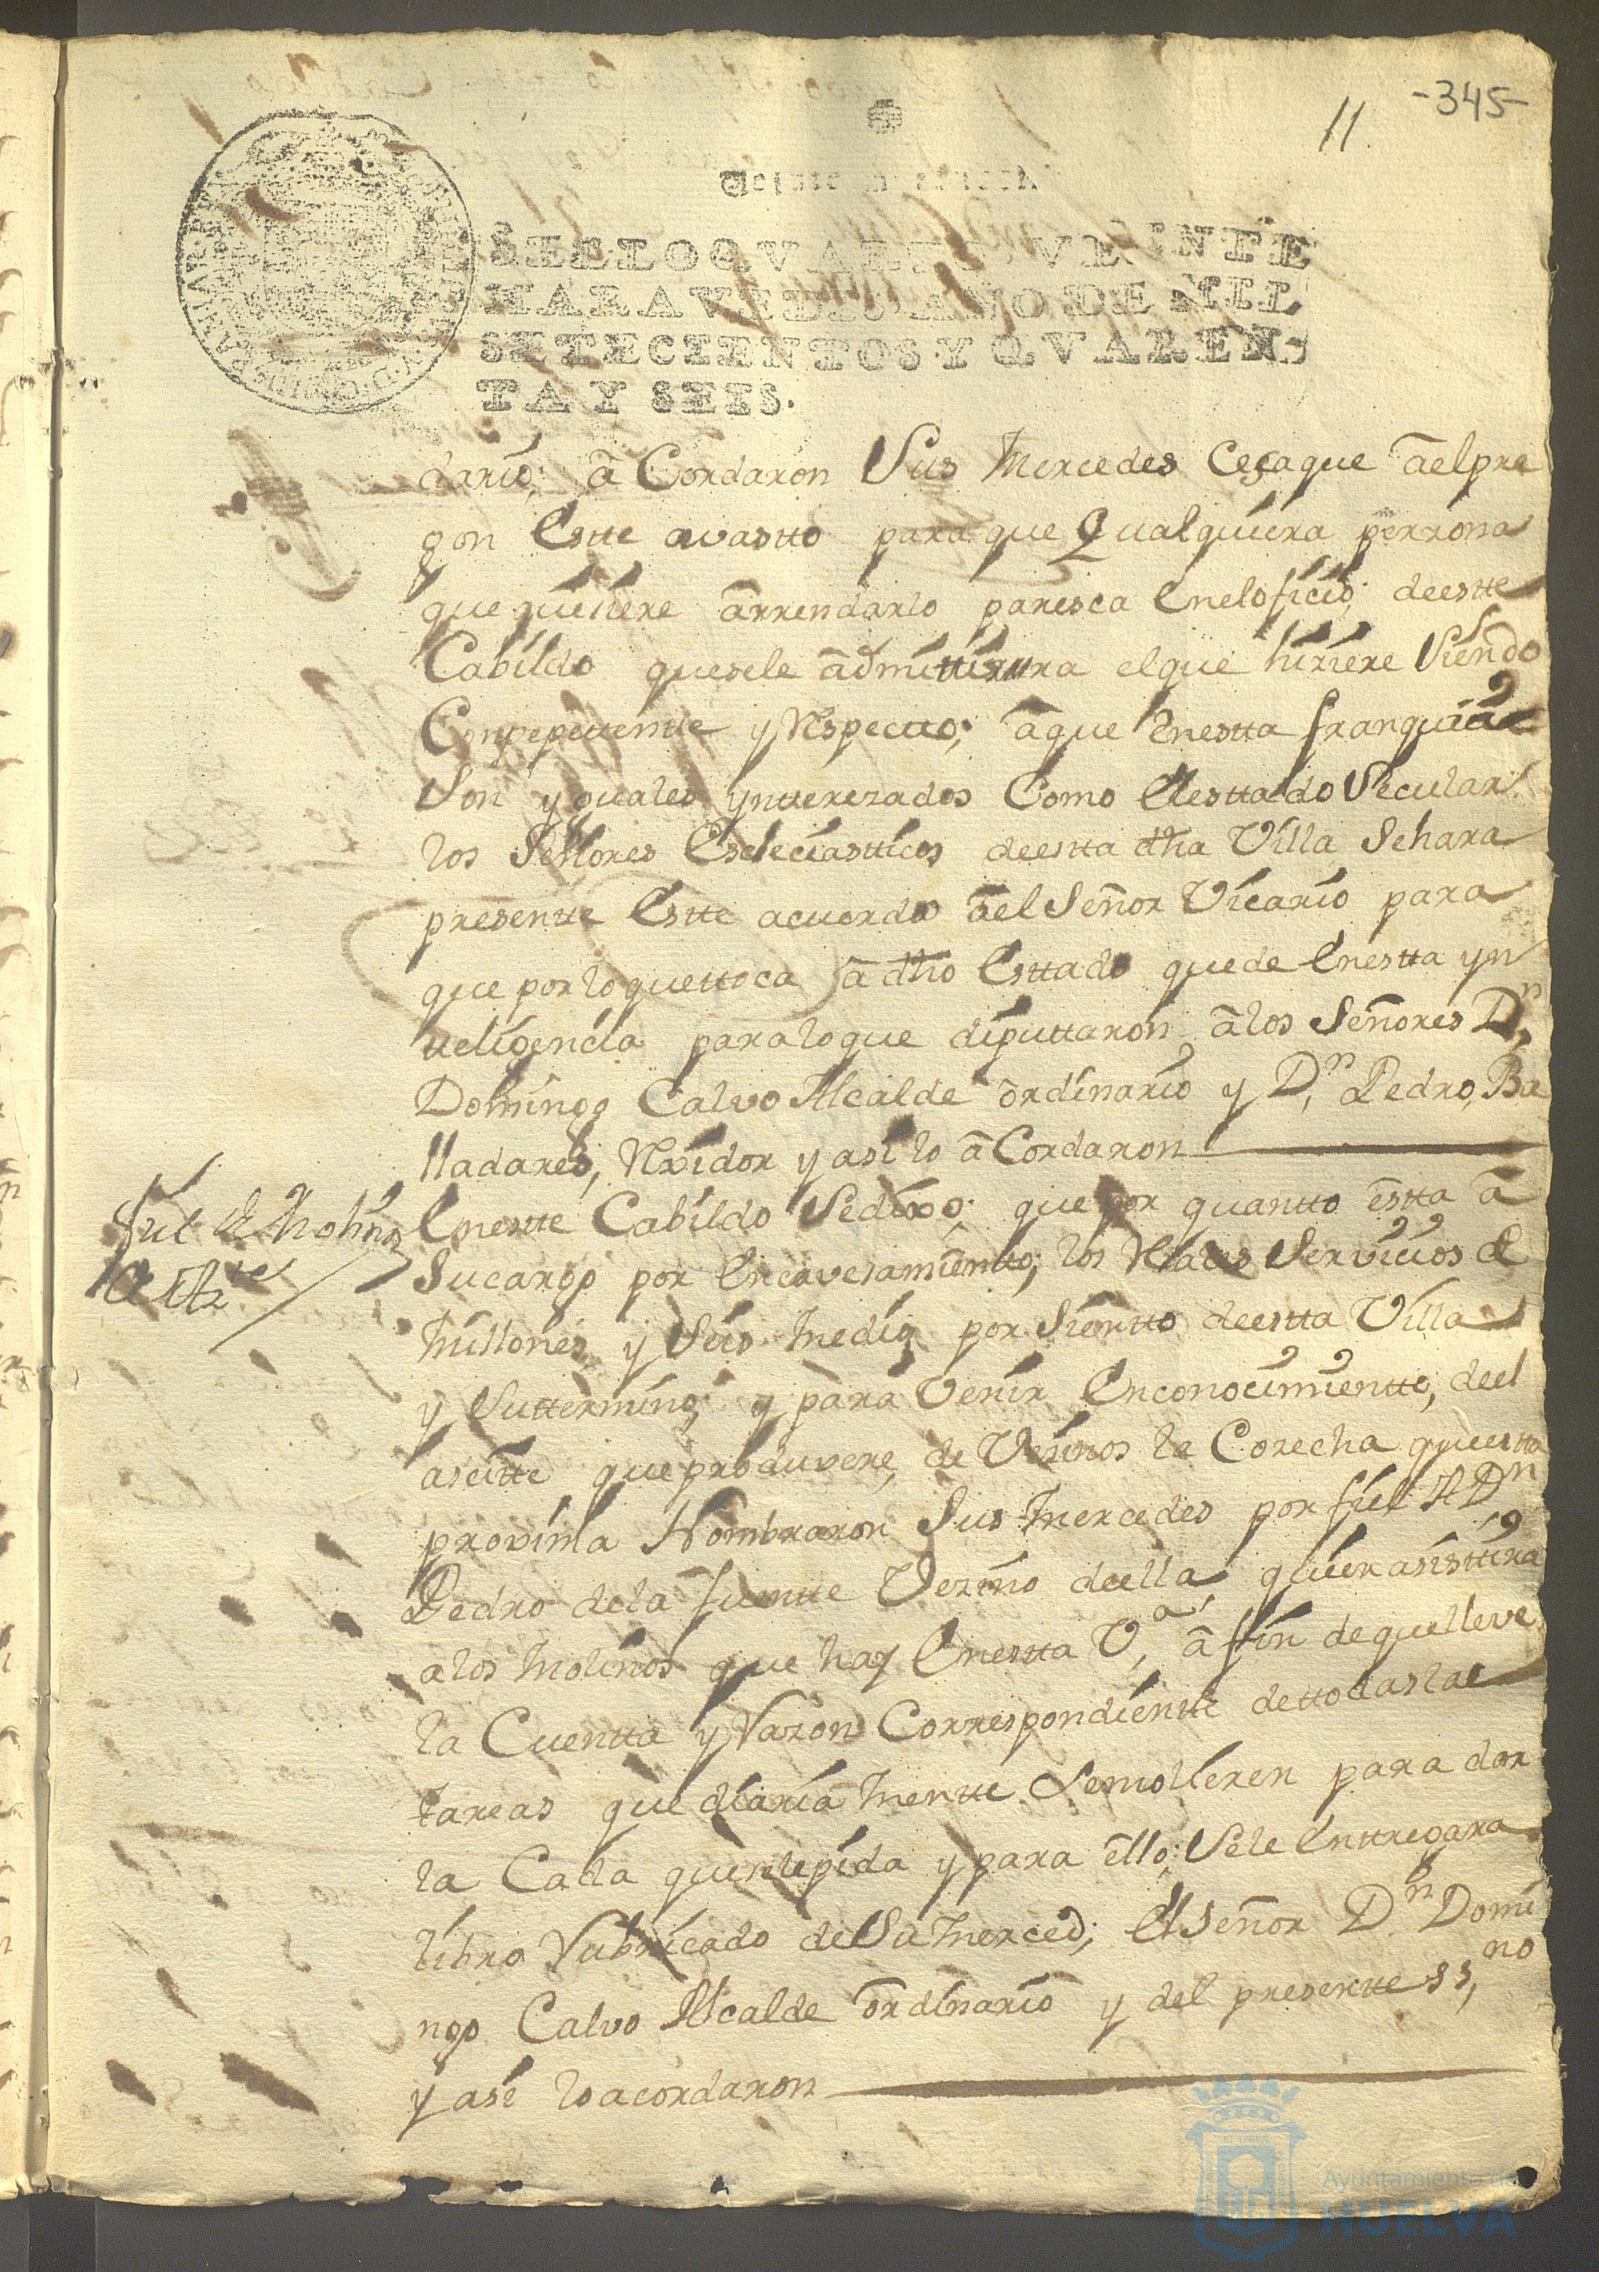 -345-
11.
SELLO QVARTO, VEINTE
MARAVEDIS, AÑO DE MIL
SETECIENTOS Y QVAREN-
TA Y SEIS.
dario; a Cordaron Sus Mercedes Sesaque a el pre
gon Estte avastto para que Qualquiera perzona
que quiciere arrendarlo paresca En el oficio, de estte
Cabildo que se le admittira el que hiziere Siendo
Conpepettentte y Respectto; a que En estta franquicia
Son yguales yntterezados Como El esttado Secular
los Señores Ecleciastticos de estta dha Villa Se hara
presentte Estte acuerdo a el Señor Vicario para
que por lo que ttoca a dho Esttado quede En estta yn
tteligencia para lo que diputtaron a los Señores Dn,
Domingo Calvo Alcalde ordinario y Dn, Pedro, Ba
lladares, Rexidor y asi lo a Cordaron
Fiel de Molinos
Aztte
En estte Cabildo Se dixo; que por quantto estta a
Su cargo por Encavesamientto, los Rales Servicios de
Millones y Seis Medio por Sientto de estta Villa
y Su ttermino; y para Venir En conocimientto, de el
aseitte que produxere, de Vezinos la Cosecha que estta
proxima Nombraron Sus Mercedes por fiel A Dn
Pedro de la fuentte Vezino de ella, quien asisttira
a los Molinos que hay En estta Va, a fin de que lleve
la Cuentta y Razon Correspondientte de ttodas las
tareas que diaria Mentte Se molieren para dar
la Cada que se le pida y para ello; Se le Enttregara
libro Rubricado de Su Merced; El Señor Dn Domi
ngo Calvo Alcalde ordinario y del presentte ss,no
y asi lo acordaron
Ayuntamiento de
HUELVA